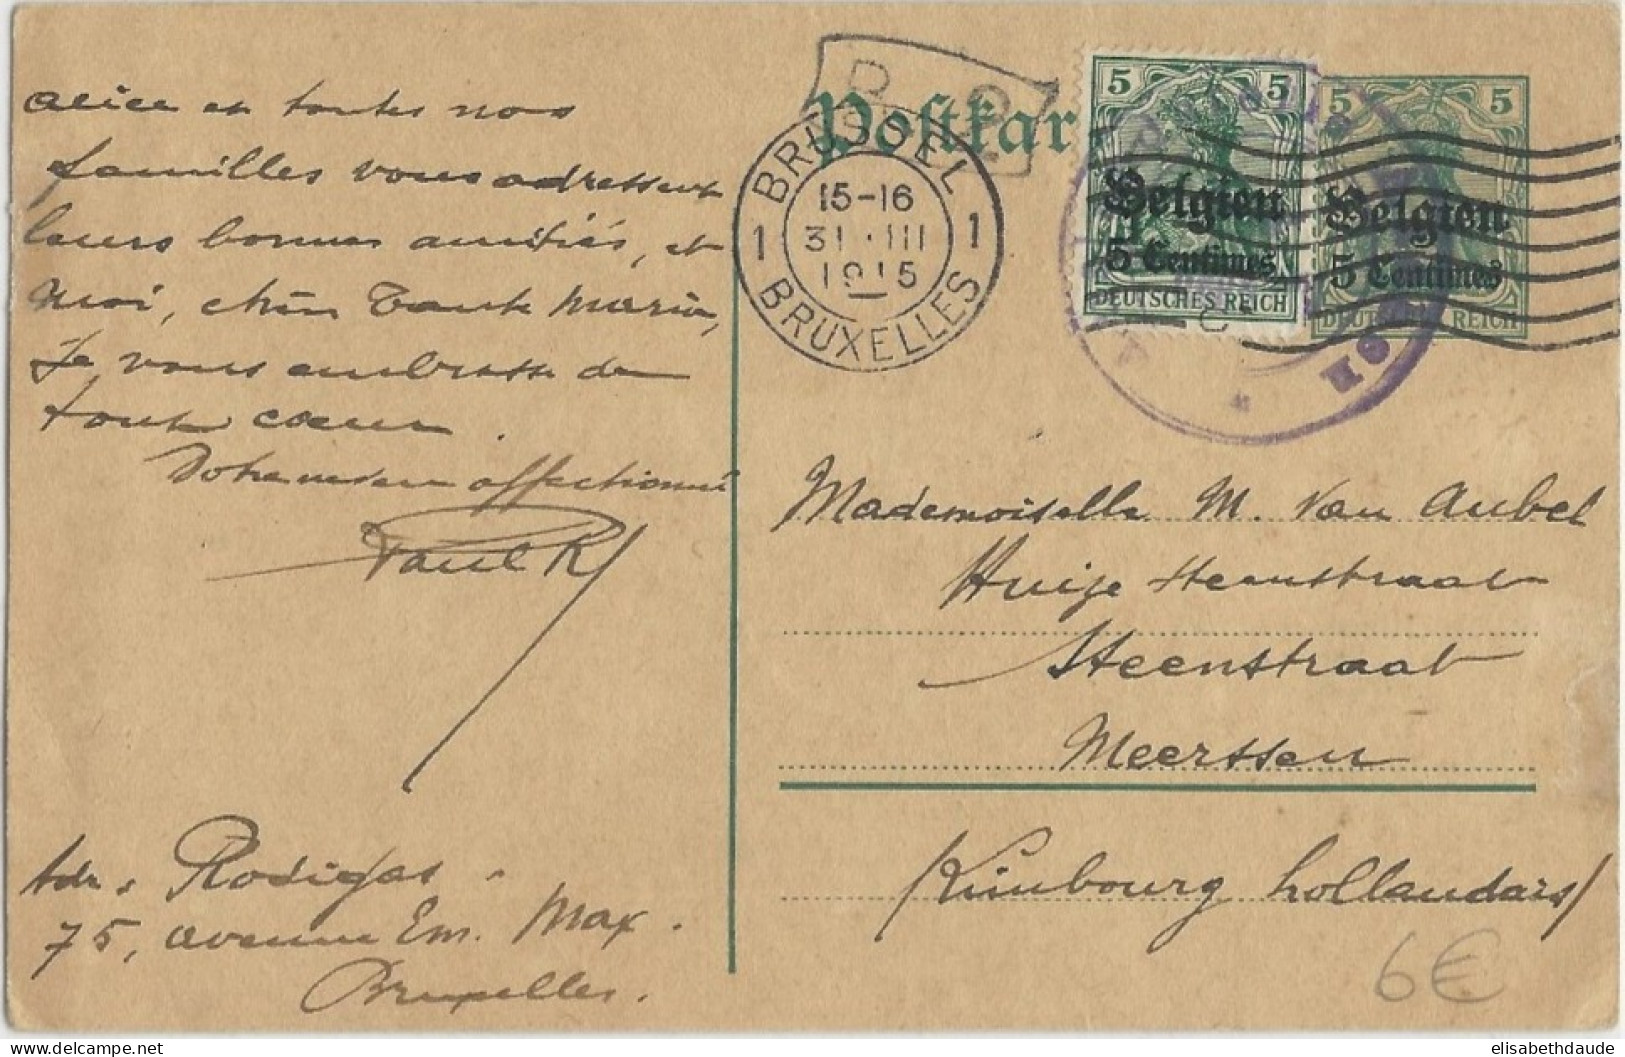 alice et toutes nos
familles vous adressent
leurs bonnes amitiés, et
moi, chère Tante Maria,
je vous embrasse de
tout cœur.
Votre neveu affectionné
Paul R
Adr. Rodigas.
75, avenue Em. Max.
Bruxelles.
Postkar
BRUSSEL
15-16
31 III
1915
1 1
BRUXELLES
5 5
Belgien
5 Centimes
DEUTSCHES REICH
5 5
Belgien
5 Centimes
DEUTSCHES REICH
Mademoiselle M. Van Aubel
Huize Steenstraat
Steenstraat
Meerssen
(Limbourg hollandais)
6€
elisabethdaude